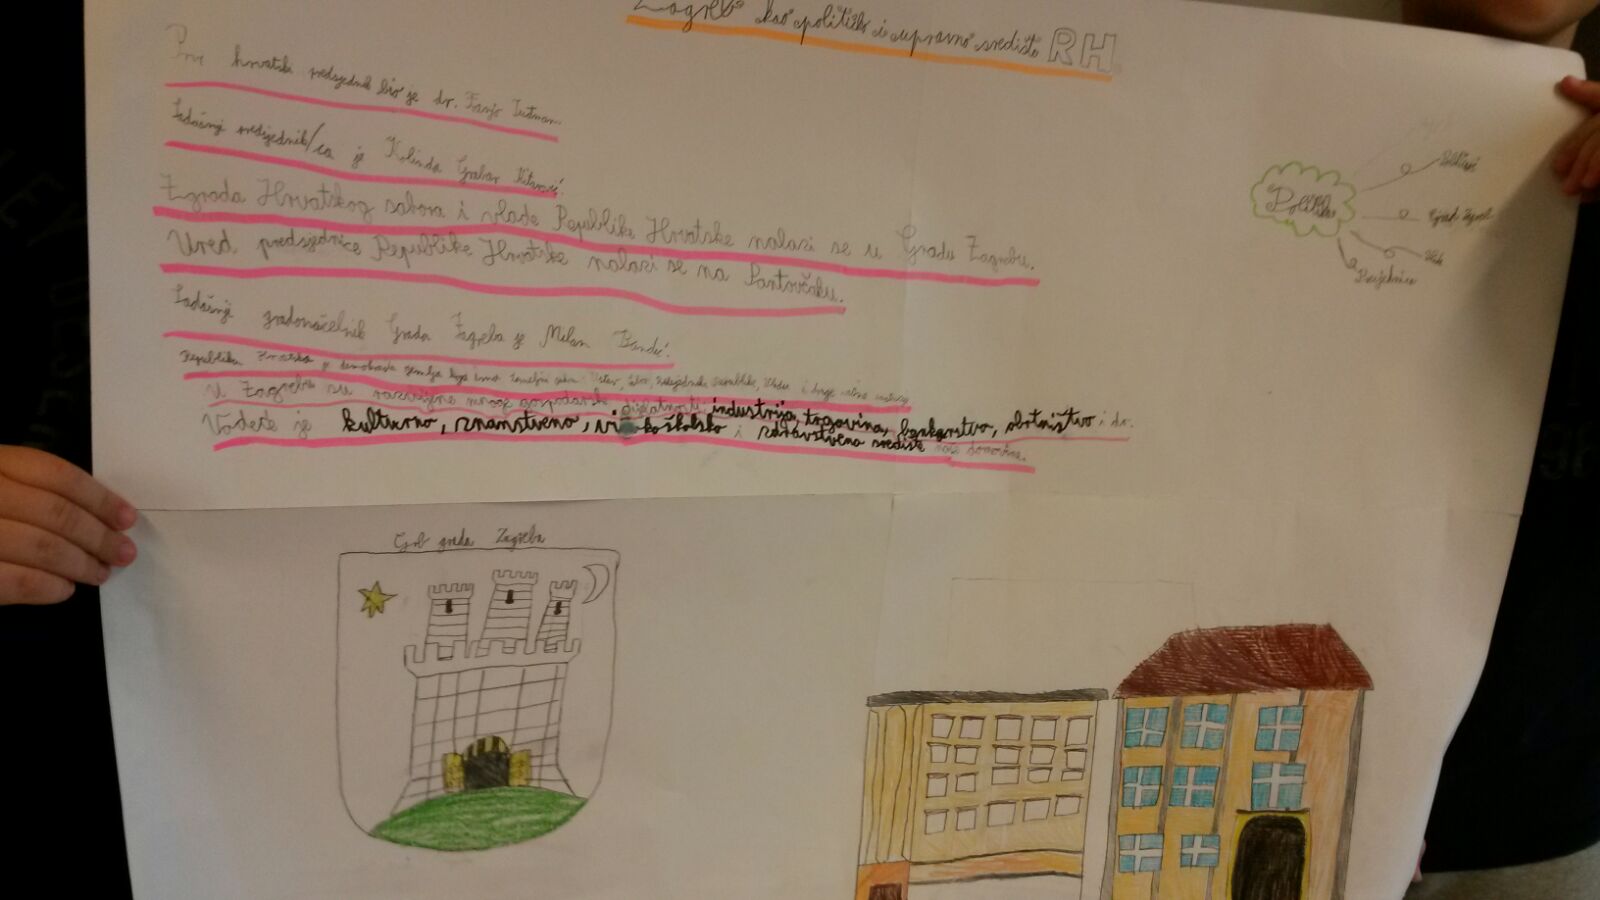 Zagreb kao političko i upravno središte RH
Prvi hrvatski predsjednik bio je dr. Franjo Tuđman.
Sadašnji predsjednik/ca je Kolinda Grabar Kitarović.
Zgrada Hrvatskog sabora i vlade Republike Hrvatske nalazi se u Gradu Zagrebu.
Ured predsjednice Republike Hrvatske nalazi se na Pantovčaku.
Sadašnji gradonačelnik Grada Zagreba je Milan Bandić.
Republika Hrvatska je demokratska zemlja koja ima temeljni zakon: Ustav, Sabor, Predsjednika republike, Vladu i druge
U Zagrebu su razvijene mnoge gospodarske djelatnosti: industrija, trgovina, bankarstvo, obrtništvo i dr.
Vodeće je kulturno, znanstveno, visokoškolsko i zdravstveno središte naše domovine.
Politika
Političari
Grad Zagreb
Vlada
Predsjednica
Grb grada Zagreba